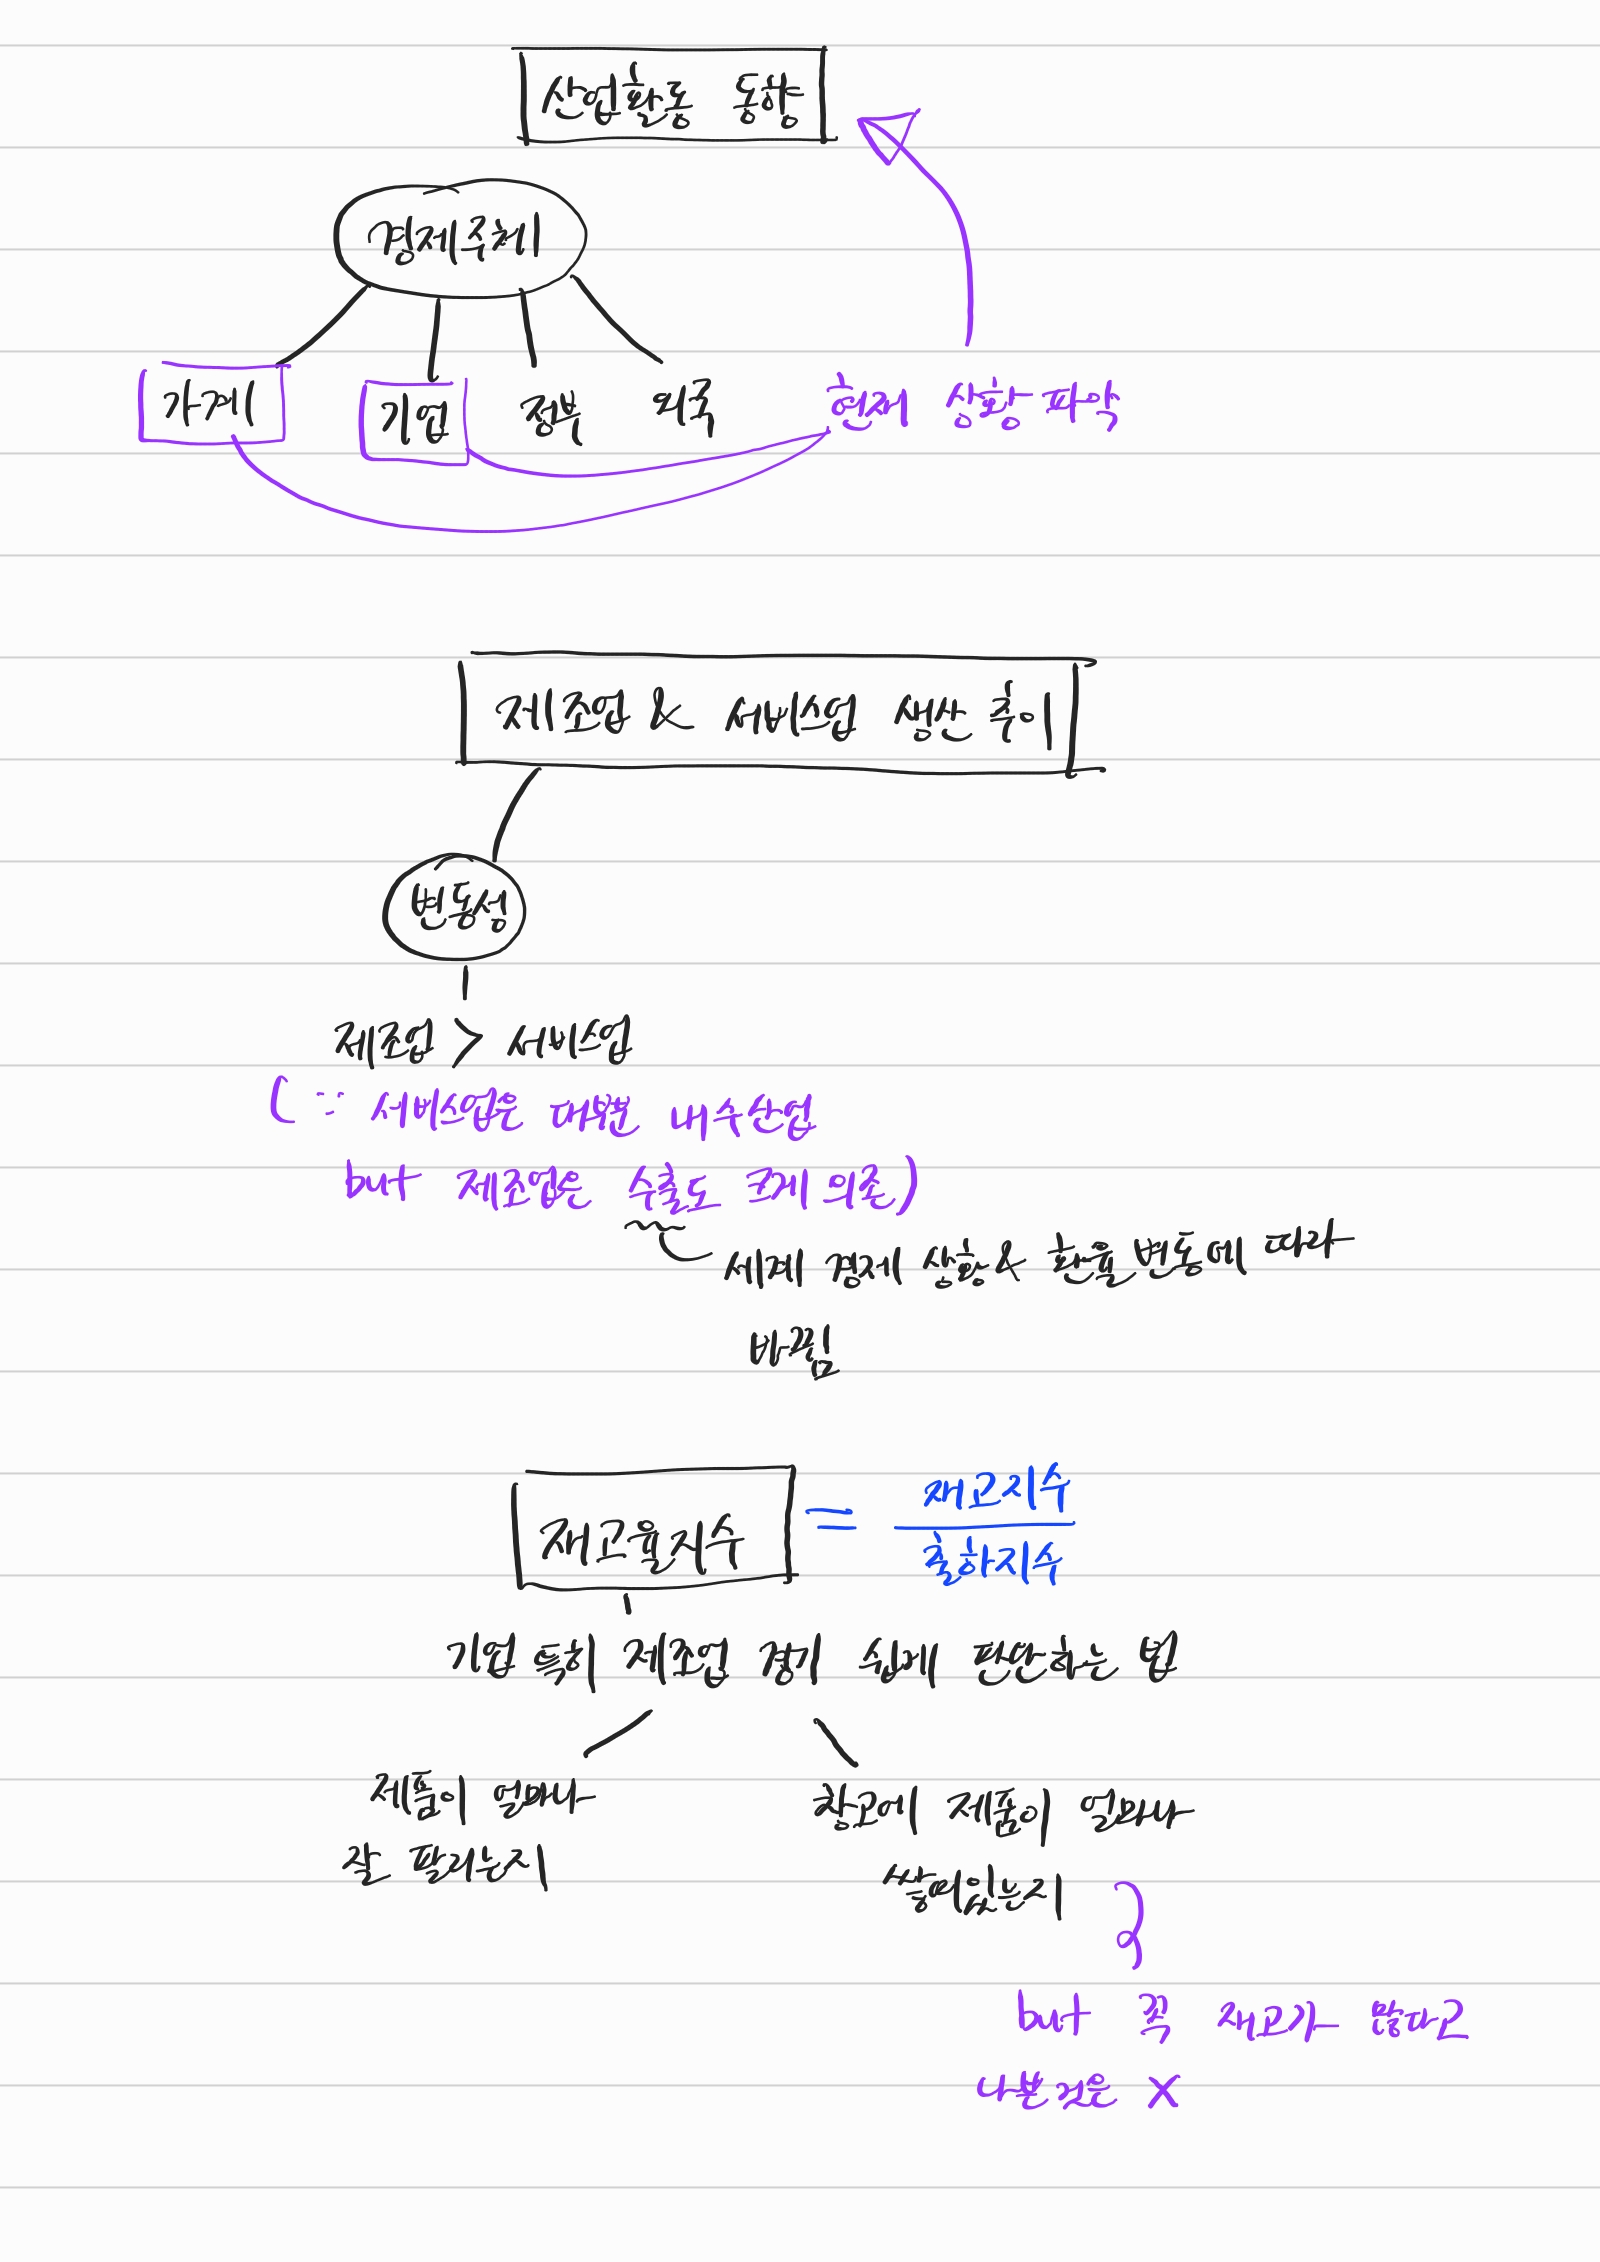 산업활동 동향
경제주체
가계 기업 정부 외국 현재 상황 파악
제조업 & 서비스업 생산 추이
변동성
제조업 > 서비스업
(∵ 서비스업은 대부분 내수산업
but 제조업은 수출도 크게 의존)
세계 경제 상황 & 환율 변동에 따라
바뀜
재고율지수 = 재고지수
출하지수
기업 특히 제조업 경기 쉽게 판단하는 법
제품이 얼마나
잘 팔리는지
창고에 제품이 얼마나
쌓여있는지
but 꼭 재고가 많다고
나쁜것은 X